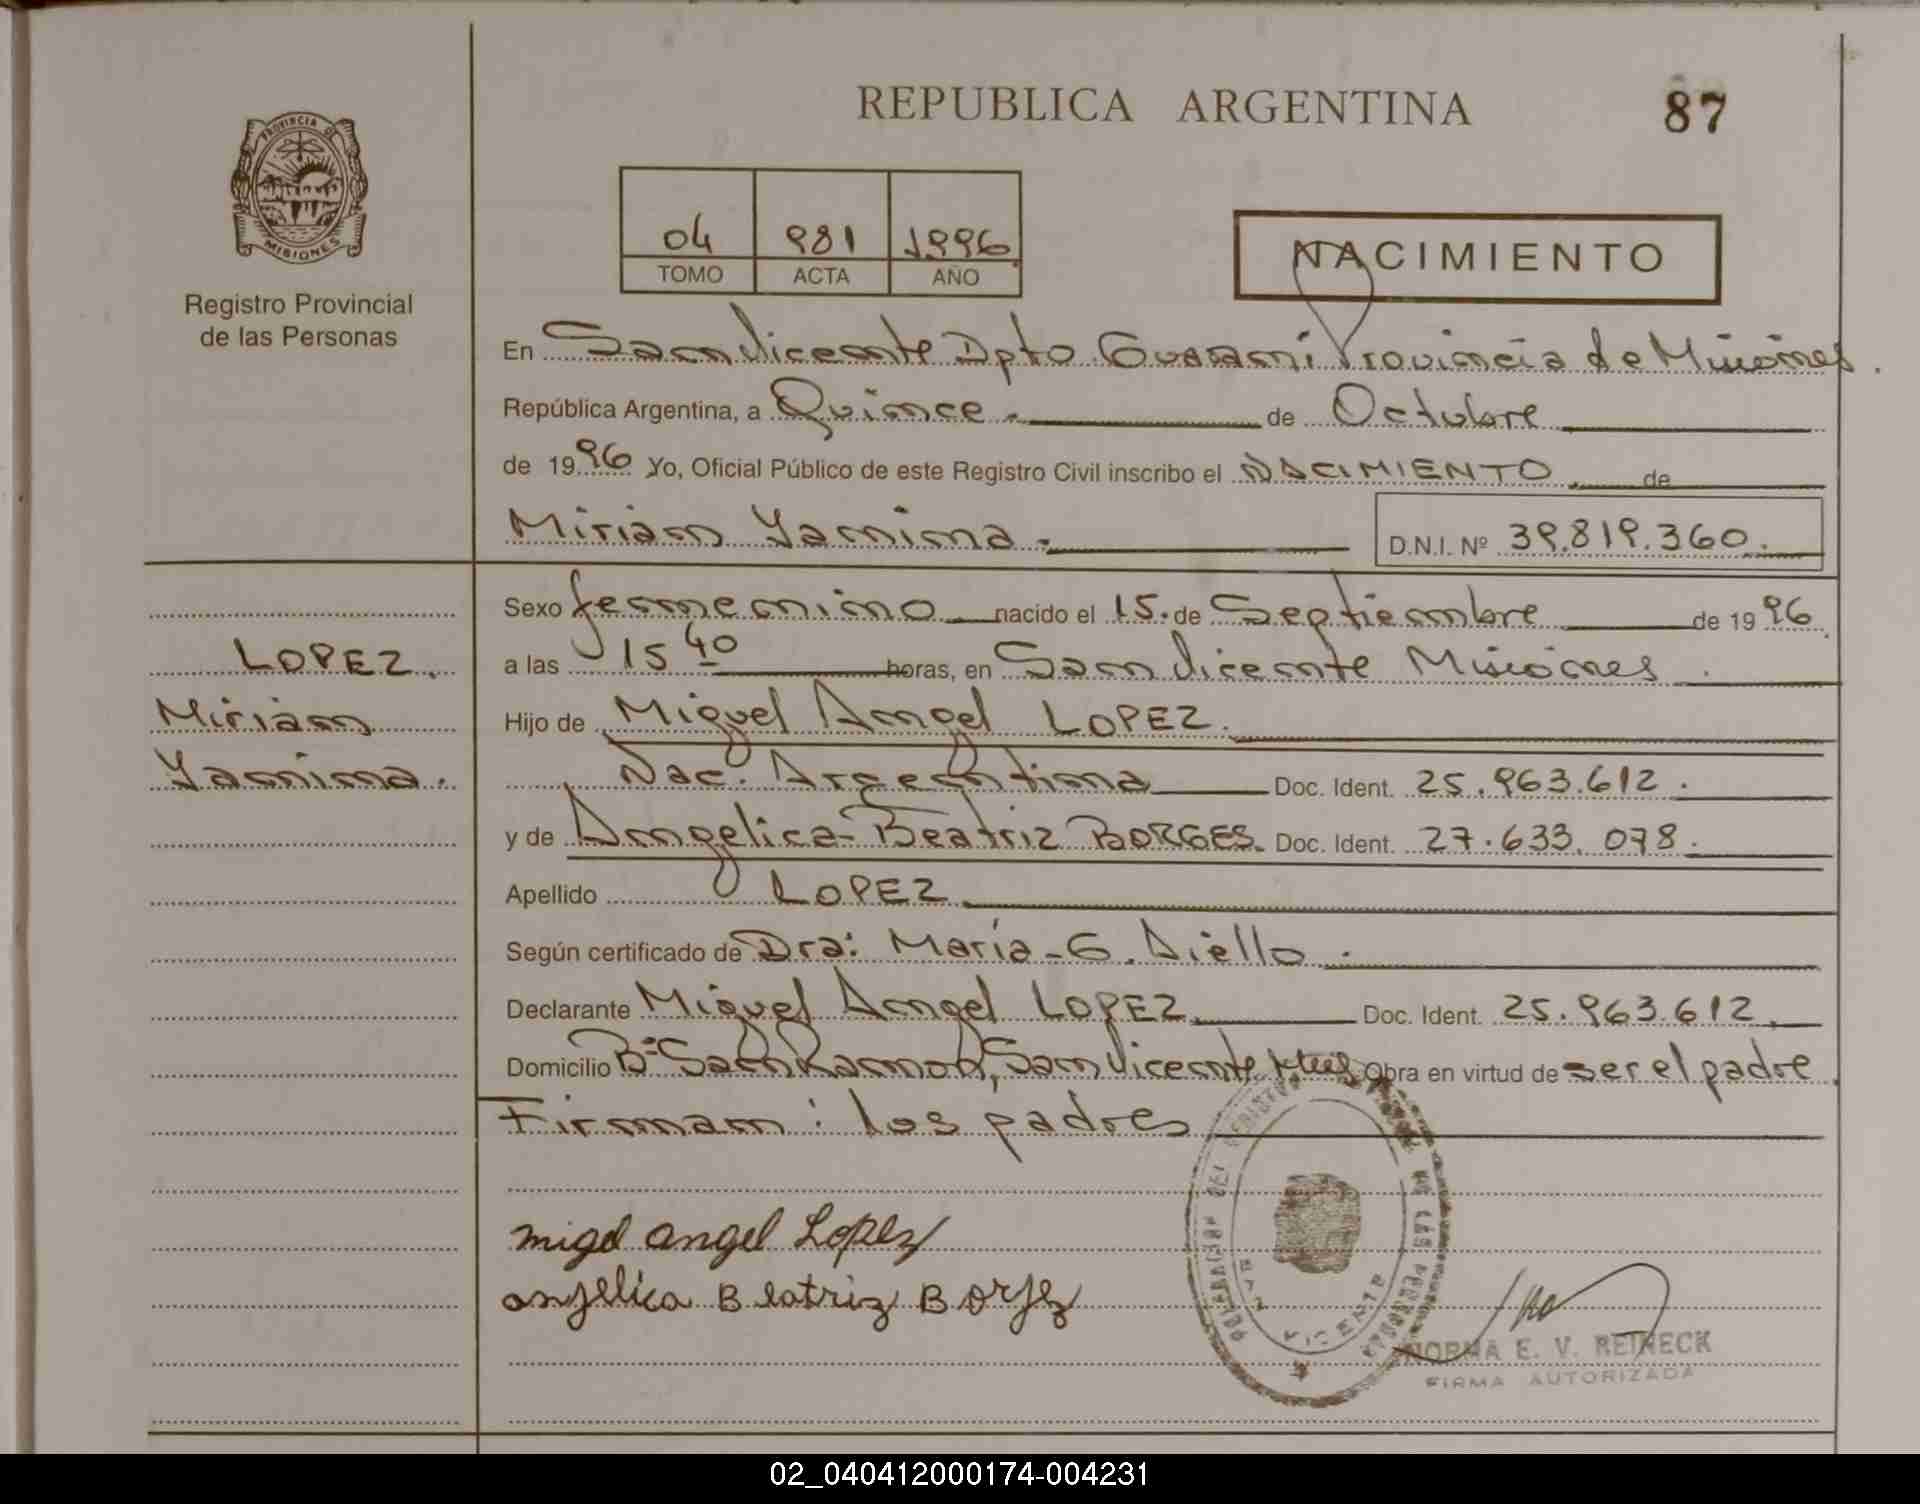 REPUBLICA ARGENTINA
87
PROVINCIA DE
MISIONES
Registro Provincial
de las Personas
04 981 1996.
TOMO ACTA AÑO
NACIMIENTO
En San Vicente Dpto Guaraní Provincia de Misiones.
República Argentina, a Quince.- de Octubre
de 1996 Yo, Oficial Público de este Registro Civil inscribo el NACIMIENTO. de
Miriam Yanina.- D.N.I. Nº 39.819.360.
Sexo femenino nacido el 15. de Septiembre de 1996.
a las 15 40 horas, en San Vicente Misiones.
LOPEZ.
Miriam
Yanina.
Hijo de Miguel Angel LOPEZ.
Nac. Argentina Doc. Ident. 25.963.612.
y de Angelica-Beatriz BORGES. Doc. Ident. 27.633.078.
Apellido LOPEZ.
Según certificado de Dra: María-G. Aiello.
Declarante Miguel Angel LOPEZ. Doc. Ident. 25.963.612.
Domicilio Bº San Ramon, San Vicente, Mnes Obra en virtud de ser el padre.
Firman: los padres
migel angel Lopez
anjelica Beatriz Borjez
DELEGACION DEL REGISTRO DE LAS PERSONAS
SAN VICENTE
NORMA E. V. REINECK
FIRMA AUTORIZADA
02_040412000174-004231